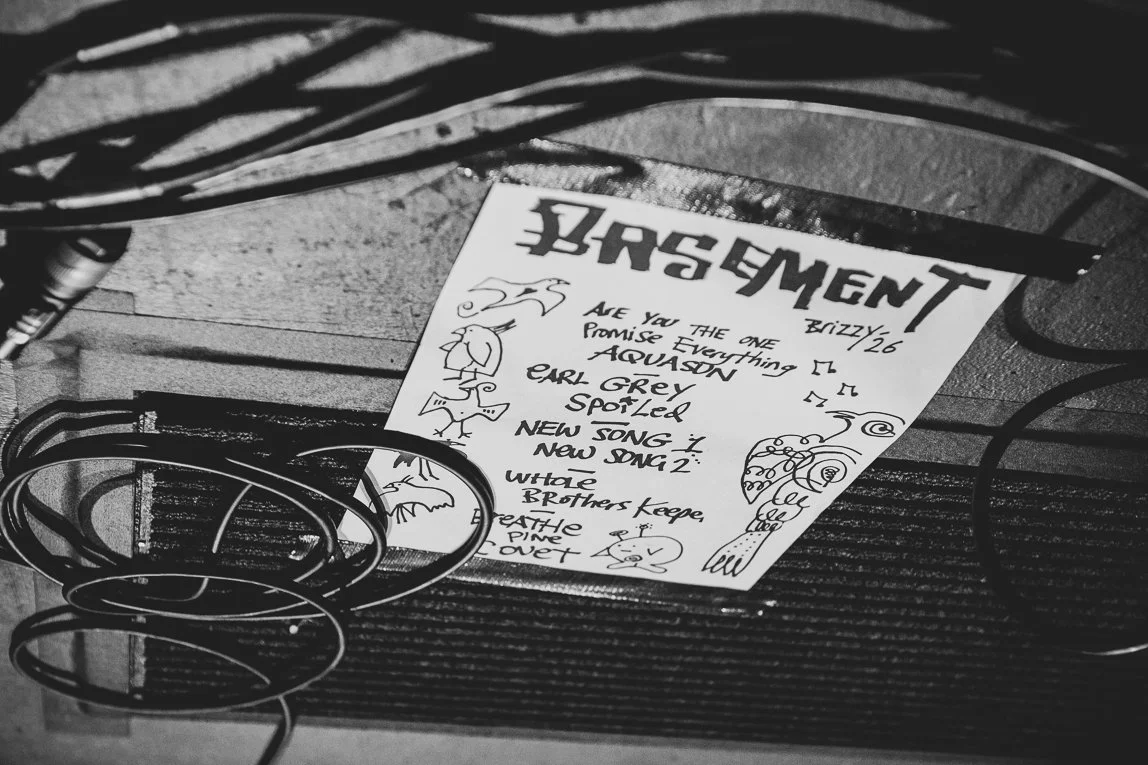 BASEMENT
Brizzy-/26
ARE YOU THE ONE
Promise Everything
AQUASUN
EARL GREY
SPOILED
NEW SONG 1
NEW SONG 2
WHOLE
BROTHERS KEEPE
BREATHE
PINE
COVET